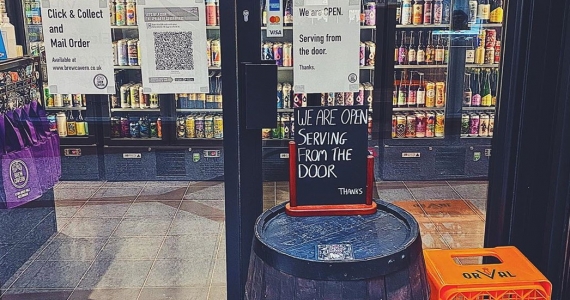 Click & Collect
and
Mail Order
Available at
www.brewcavern.co.uk
We are OPEN.
Serving from
the door.
Thanks.
VISA
WE ARE OPEN
SERVING
FROM THE
DOOR
THANKS
ORVAL